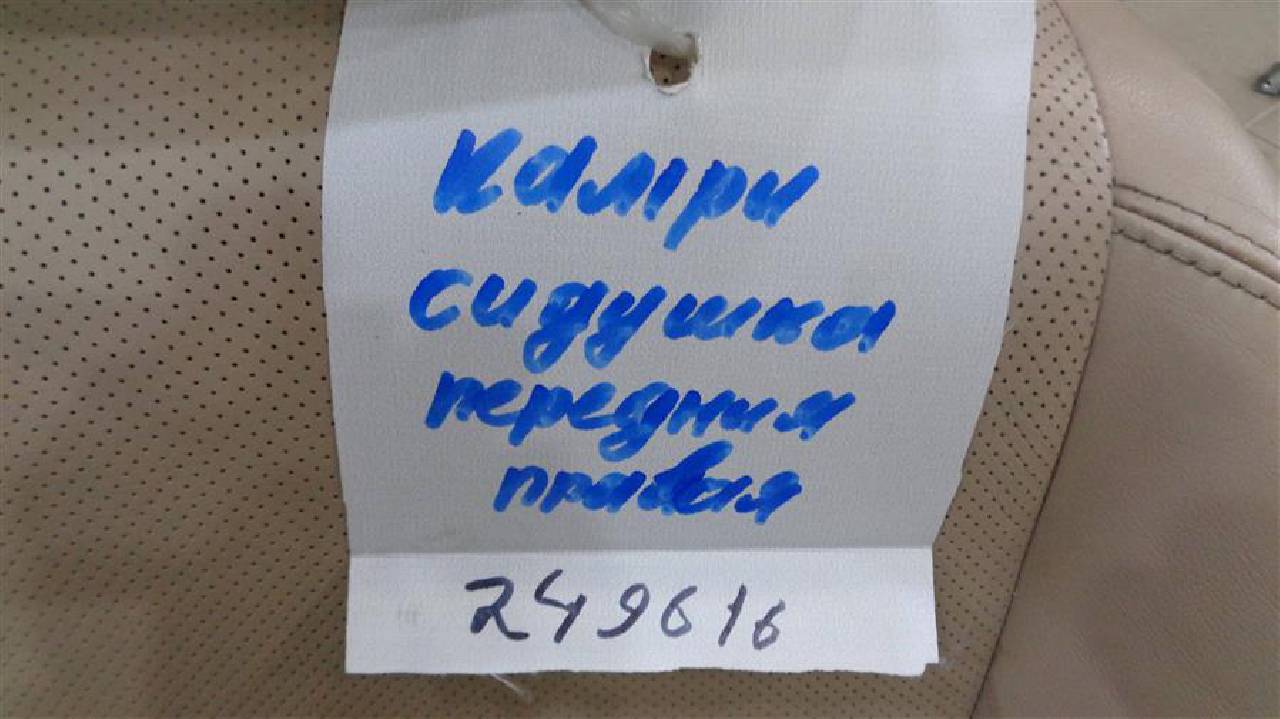 Камри
сидушка
передния
правая
249616